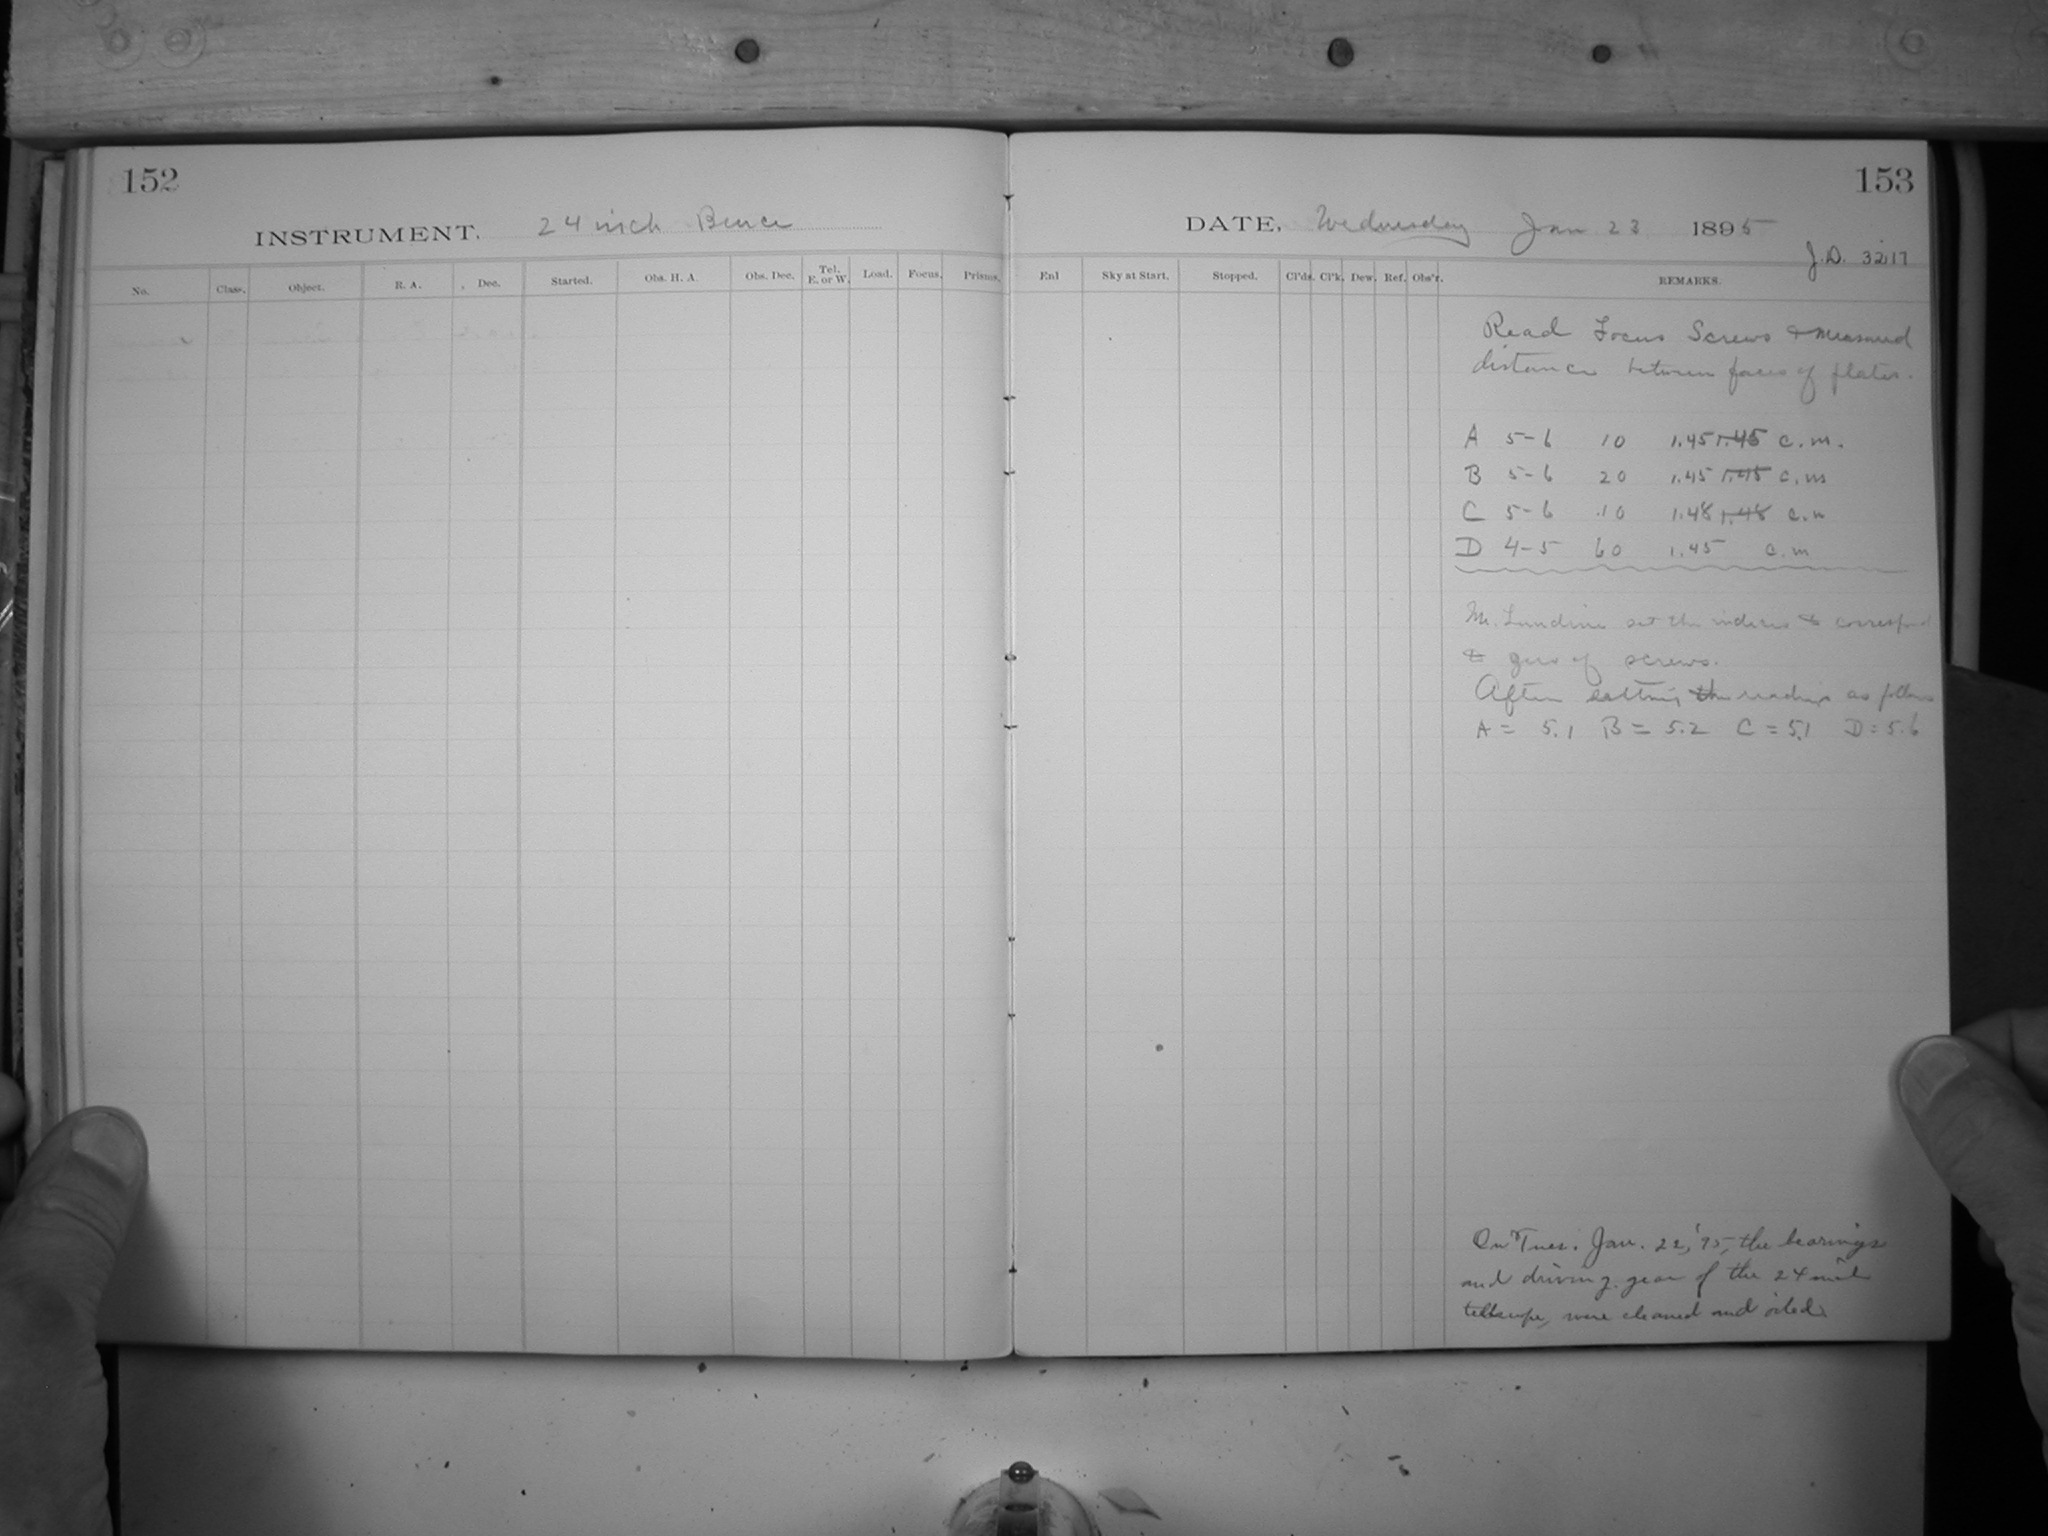 152
INSTRUMENT. 24 inch Bruce
No. Class. Object. R. A. Dec. Started. Obs. H. A. Obs. Dec. Tel. E. or W. Load. Focus. Prisms.
153
DATE, Wednesday Jan 23 1895
J.D. 3217
Enl Sky at Start. Stopped. Cl'ds. Cl'k. Dew. Ref. Obs'r. REMARKS.
Read Focus Screws & measured
distance between faces of plates.
A 5-6 10 1.45 1.45 c.m.
B 5-6 20 1.45 1.45 c.m
C 5-6 10 1.48 1.48 c.m
D 4-5 60 1.45 c.m
Mr. Lundin set the indices to correspond
to of screws.
After setting the readings as follows
A = 5.1 B = 5.2 C = 5.1 D = 5.6
On Tues. Jan. 22, '95, the bearings
and driving gear of the 24 inch
telescope, were cleaned and oiled.